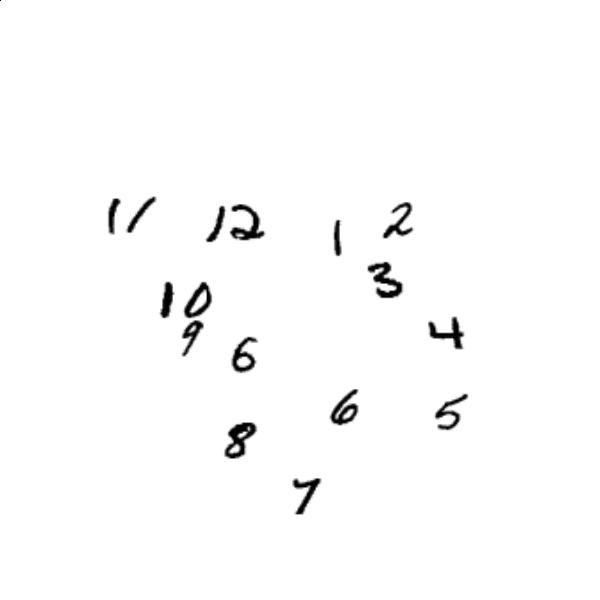 11 12 1 2
3
10
9 6 4
6 5
8
7